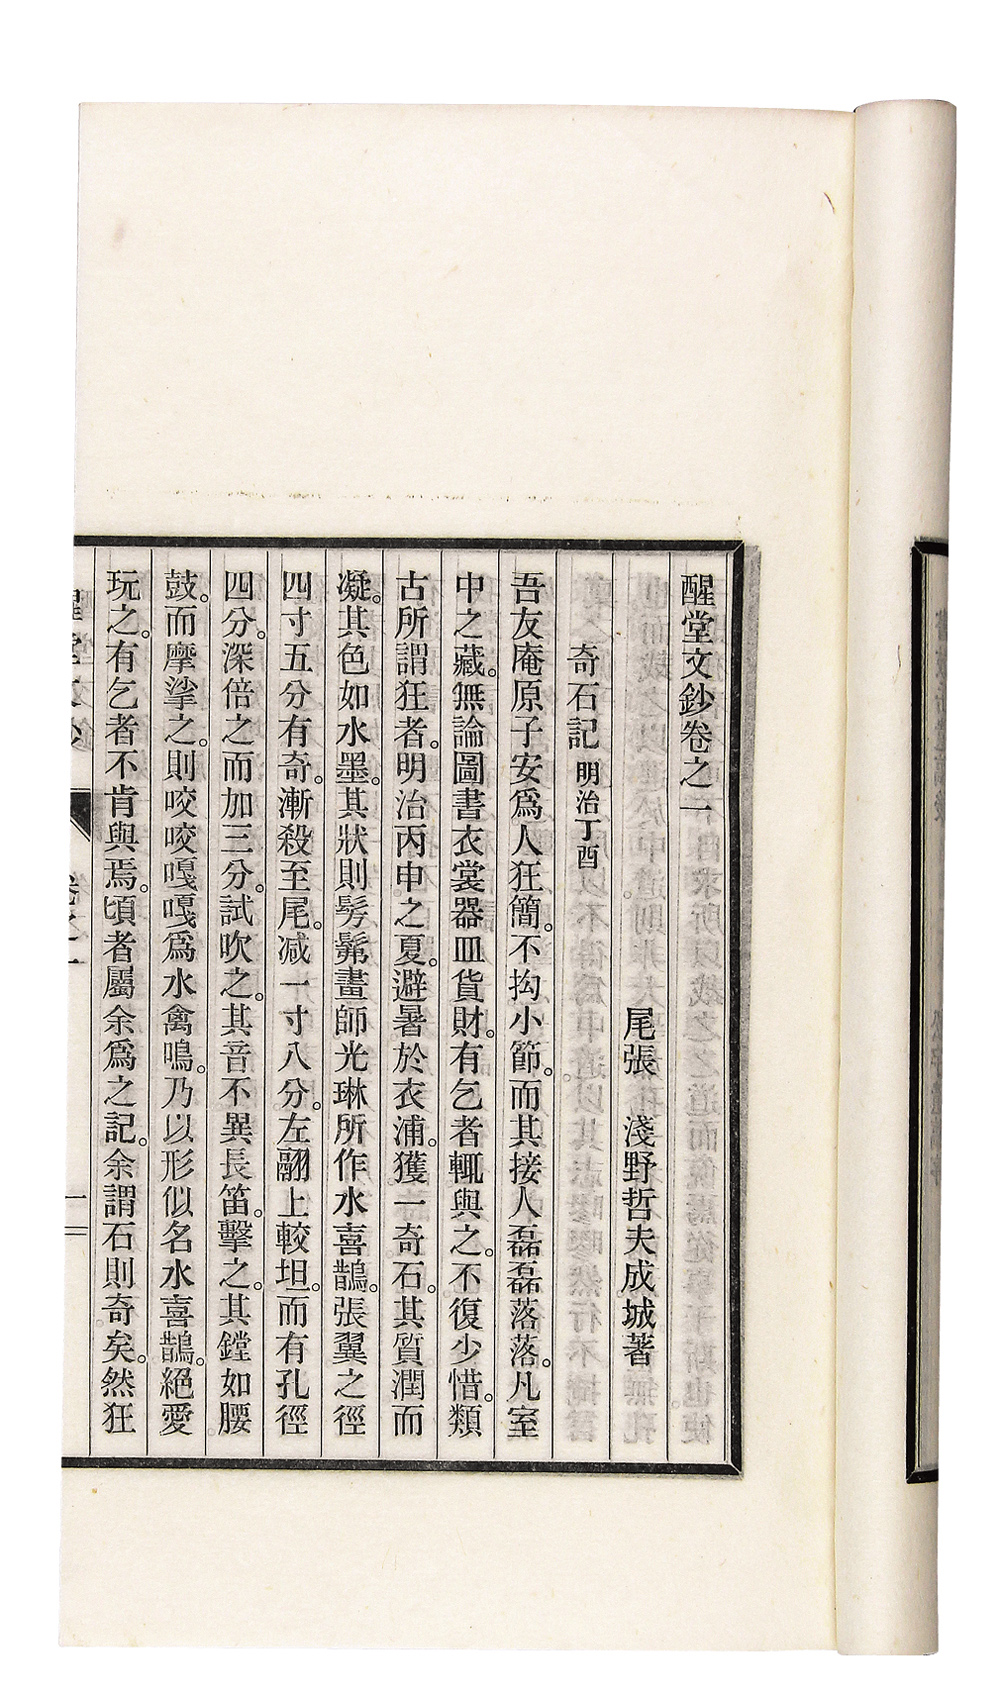 醒堂文鈔卷之一
尾張 淺野哲夫成城著
奇石記 明治丁酉
吾友庵原子安爲人狂簡。不拘小節。而其接人磊磊落落。凡室
中之藏。無論圖書衣裳器皿貨財。有乞者輒與之。不復少惜。類
古所謂狂者。明治丙申之夏。避暑於衣浦。獲一奇石。其質潤而
凝。其色如水墨。其狀則髣髴畫師光琳所作水喜鵲。張翼之徑
四寸五分有奇。漸殺至尾。减一寸八分。左翮上較坦。而有孔徑
四分。深倍之而加三分。試吹之。其音不異長笛。擊之。其鏜如腰
鼓。而摩挲之。則咬咬嘎嘎爲水禽鳴。乃以形似名水喜鵲。絕愛
玩之。有乞者不肯與焉。頃者屬余爲之記。余謂石則奇矣。然狂
醒堂文鈔 卷之一 一